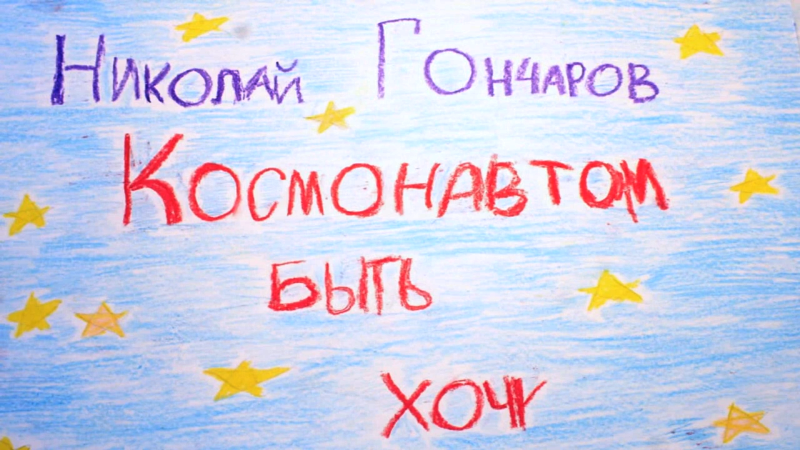 Николай Гончаров
Космонавтом
быть
хочу